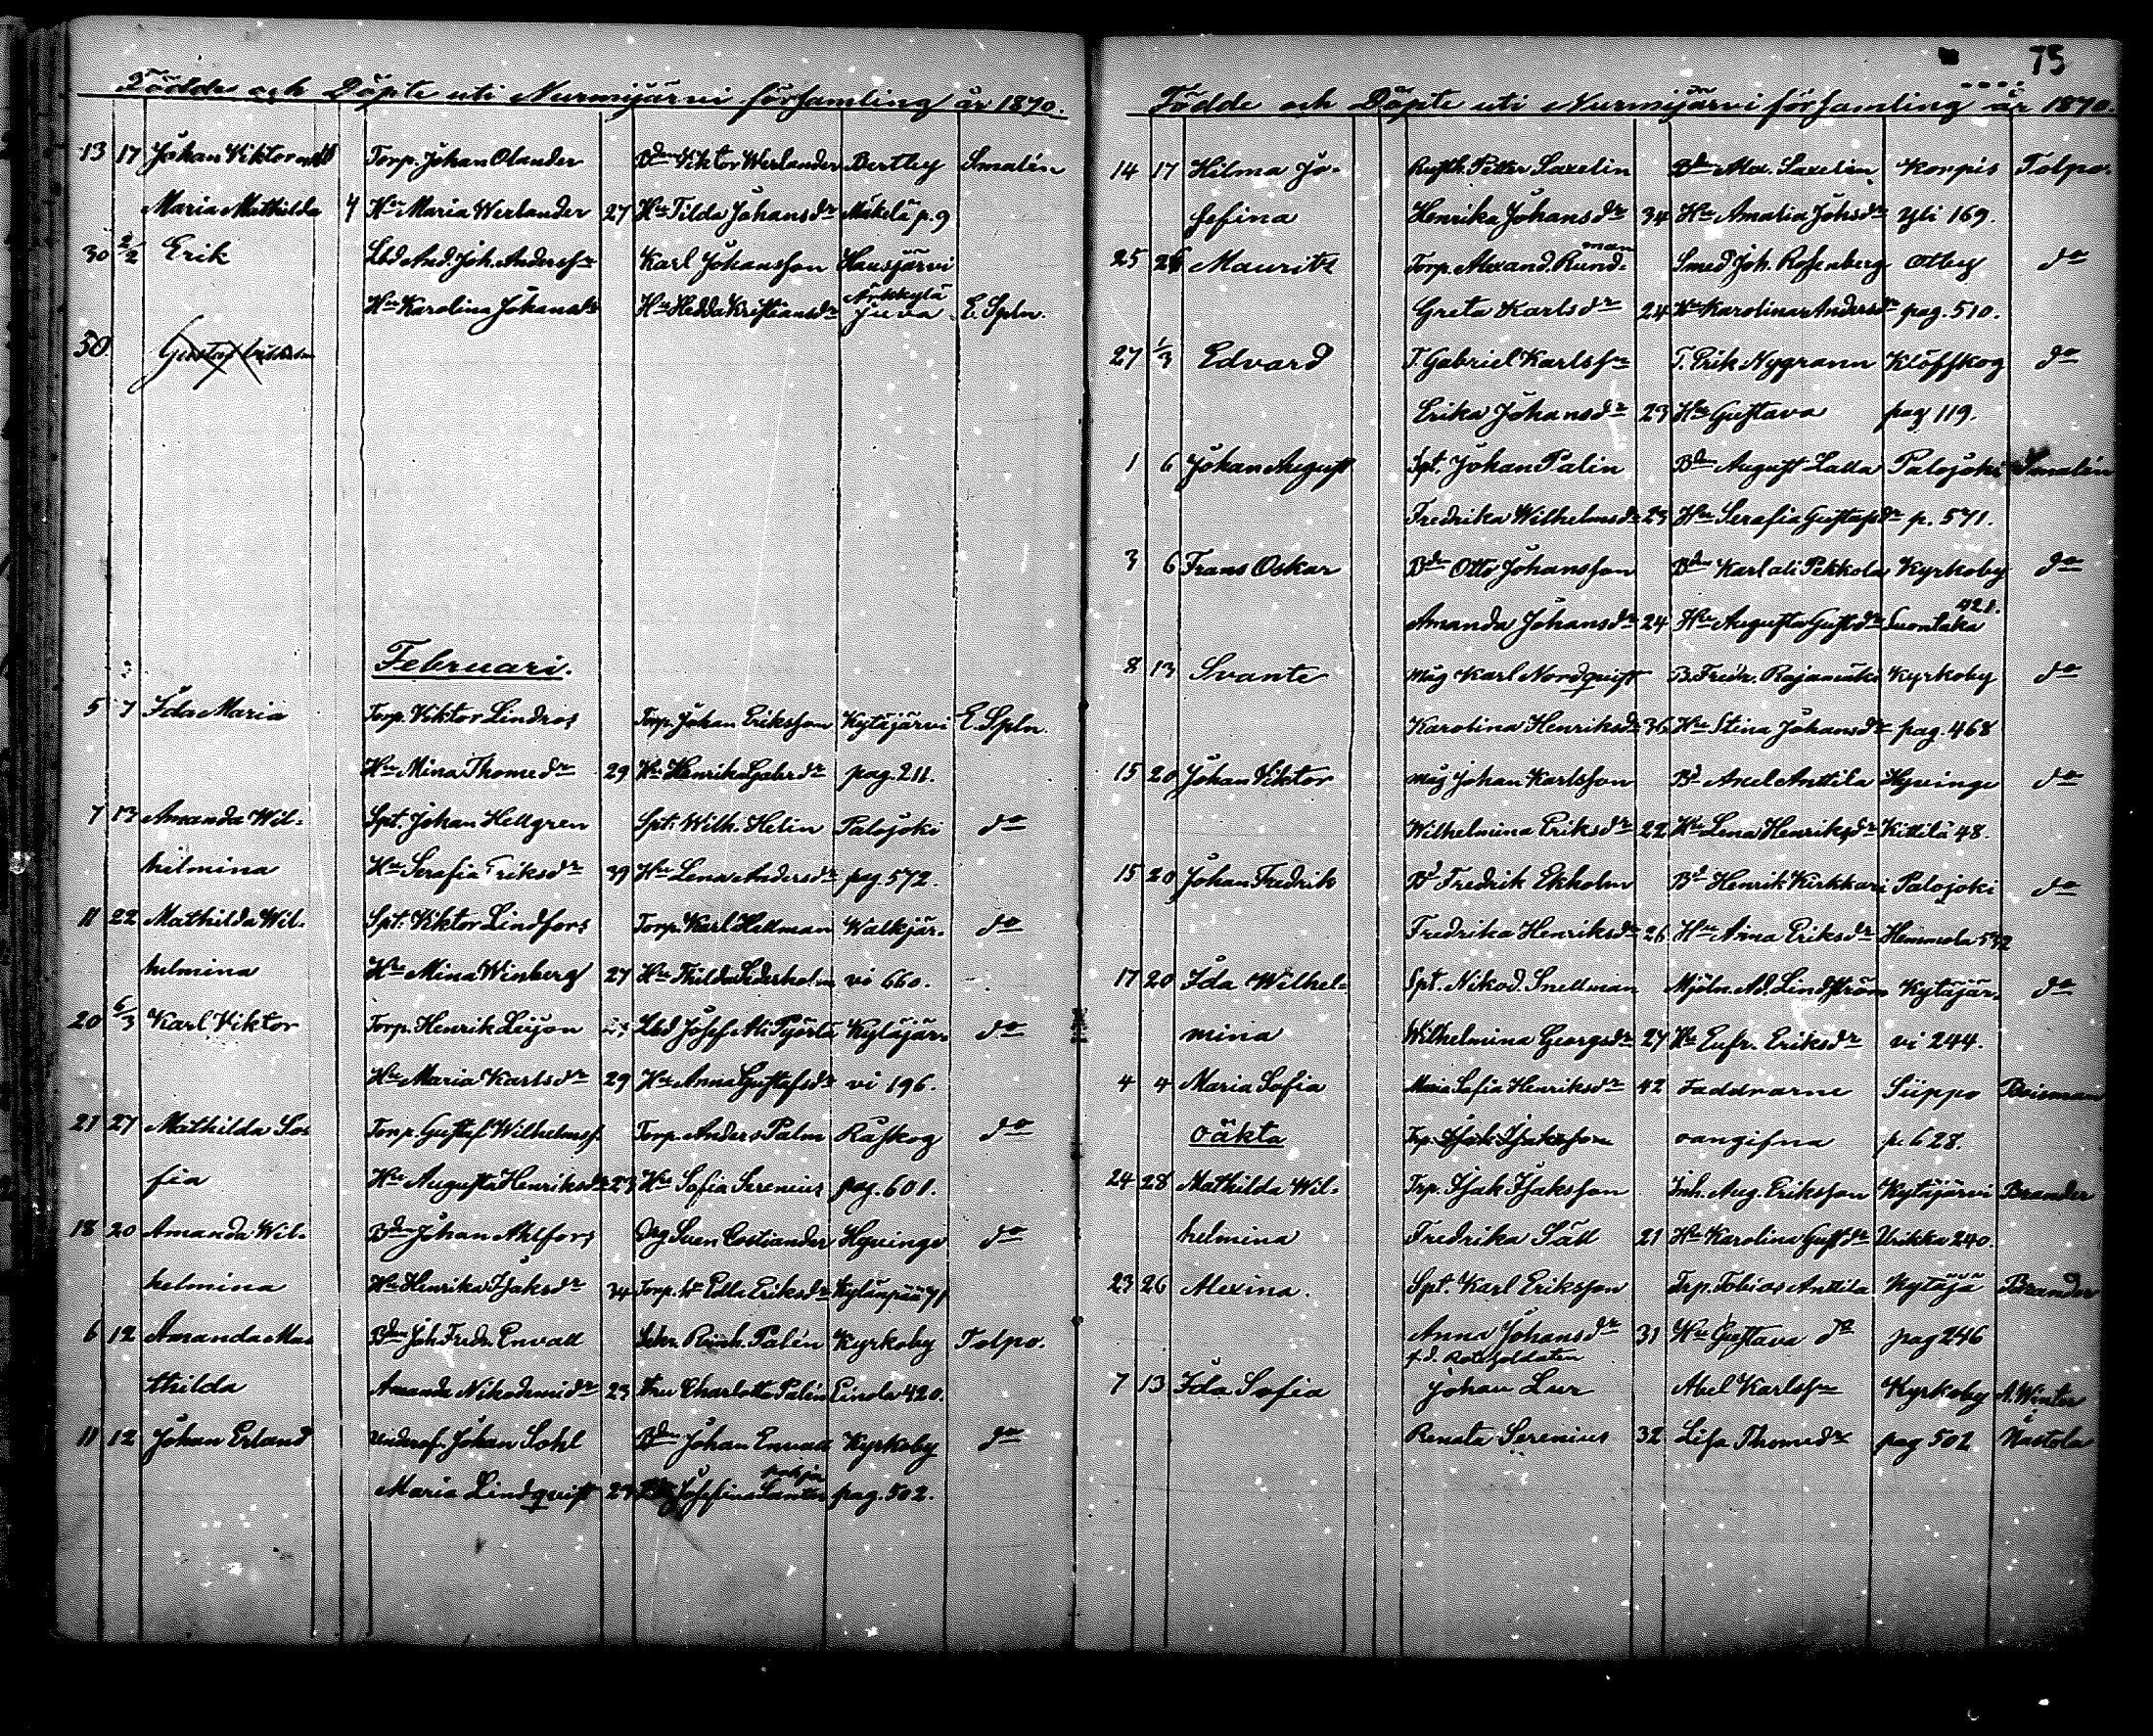 Födde och Döpte uti Nurmijärvi församling år 1870.
13 17 Johan Viktor Torp. Johan Olander Bdn Viktor Werlander Bertley Smalén
Maria Mathilda 4 Hu Maria Werlander 27 Hu Tilda Johansdr Mäkelä p. 9
30 2/2 Erik Lbd And. Joh. Andersson Karl Johansson Hausjärvi
Hu Karolina Johansdr Hu Hedda Kristiansdr Juva E. Spln.
30 Gustaf
Februari.
5 7 Ida Maria Torp. Viktor Lindros Torp. Johan Eriksson Kytäjärvi E. Spln.
Hu Mina Thomedr 29 Hu Henrika Gabrdr pag. 211.
7 13 Amanda Wil- Spt. Johan Hellgren Spt. Wilh. Helin Palojoki do
helmina Hu Serafia Eriksdr 39 Hu Lena Andersdr pag. 572.
11 22 Mathilda Wil- Spt. Viktor Lindfors Torp. Karl Hellman Walkjär- do
helmina Hu Mina Winberg 27 Hu Thilda Lederholm vi 660.
20 6/3 Karl Viktor Torp. Henrik Leijon Lbd Josef Ali Pyörlä Kytäjär- do
Hu Maria Karlsdr 29 Hu Anna Gustafsdr vi 196.
21 27 Mathilda So- Torp. Gustaf Wilhelmss. Torp. Anders Palm Raskog do
fia Hu Augusta Henriksdr 23 Hu Sofia Serenius pag. 601.
18 20 Amanda Wil- Bdn Johan Ahlfors Drg Sven Costiander Hyvinge do
helmina Hu Henrika Isaksdr 34 Torp. Edla Eriksdr Kytänpää 71
6 12 Amanda Ma- Bdn Joh. Fredr. Envall Reinh. Palén Kyrkoby Tolpo.
thilda Amanda Nikodemidr 23 Fru Charlotta Palén Einola 420.
11 12 Johan Erland Underof. Johan Sohl Bdn Johan Envall Kyrkoby do
Maria Lindqvist 27 Josefina pag. 502.
75
Födde och Döpte uti Nurmijärvi församling år 1870.
14 17 Hilma Jo- Rusth. Petter Saxelin Bdn Alex. Saxelin Korpis Tolpo.
sefina Henrika Johansdr 34 Hu Amalia Johsdr Yli 169.
25 26 Maurits Torp. Alexand. Rund- man Smed Joh. Rosenberg Otley do
Greta Karlsdr 24 Hu Karolina Andersdr pag. 510.
27 1/3 Edvard T. Gabriel Karlssn T. Erik Nygrann Klöfskog do
Erika Johansdr 23 Hu Gustava pag 119.
1 6 Johan August Spt. Johan Palin Bdn August Lalla Palojoki Smalén
Fredrika Wilhelmsdr 23 Hu Serafia Gustafsdr p. 571.
3 6 Frans Oskar Bdn Otto Johansson Bdn Karl ali Pekkola Kyrkoby do
421.
Amanda Johansdr 24 Hu Augusta Gustdr Luontaka
8 13 Svante Måg Karl Nordqvist B. Fredr. Rajamäki Kyrkoby do
Karolina Henriksdr 36 Hu Stina Johansdr pag. 468
15 20 Johan Viktor Måg Johan Karlsson Bd Axel Anttila Hyvinge do
Wilhelmina Eriksdr 22 Hu Lena Henriksdr Kittilä 48.
15 20 Johan Fredrik Bd Fredrik Ekholm Bd Henrik Kirkkari Palojoki do
Fredrika Henriksdr 26 Hu Anna Eriksdr Hemmola 532
17 20 Ida Wilhel- Spt. Nikod. Snellman Mjöln. Ad. Lindström Kytäjär- do
mina Wilhelmina Georgsdr 27 Hu Eufr. Eriksdr vi 244.
4 4 Maria Sofia Maria Sofia Henriksdr 42 Faddrarne Siippo Boisman
oäkta Trp. Isak Isaksson oangifna p. 628.
24 28 Mathilda Wil- Trp. Isak Isaksson Inh. Aug. Eriksson Kytäjärvi Brander
helmina Fredrika Säll 21 Hu Karolina Gustdr Urikka 240.
23 26 Alexina. Spt. Karl Eriksson Trp. Tobias Anttila Kytäjä Brander
Anna Johansdr 31 Hu Gustava dr pag 246
f.d. Rotesoldaten
7 13 Ida Sofia Johan Lur Abel Karlssn Kyrkoby A. Winter
Renata Serenius 32 Lisa Thomedr pag 502 i Nastola